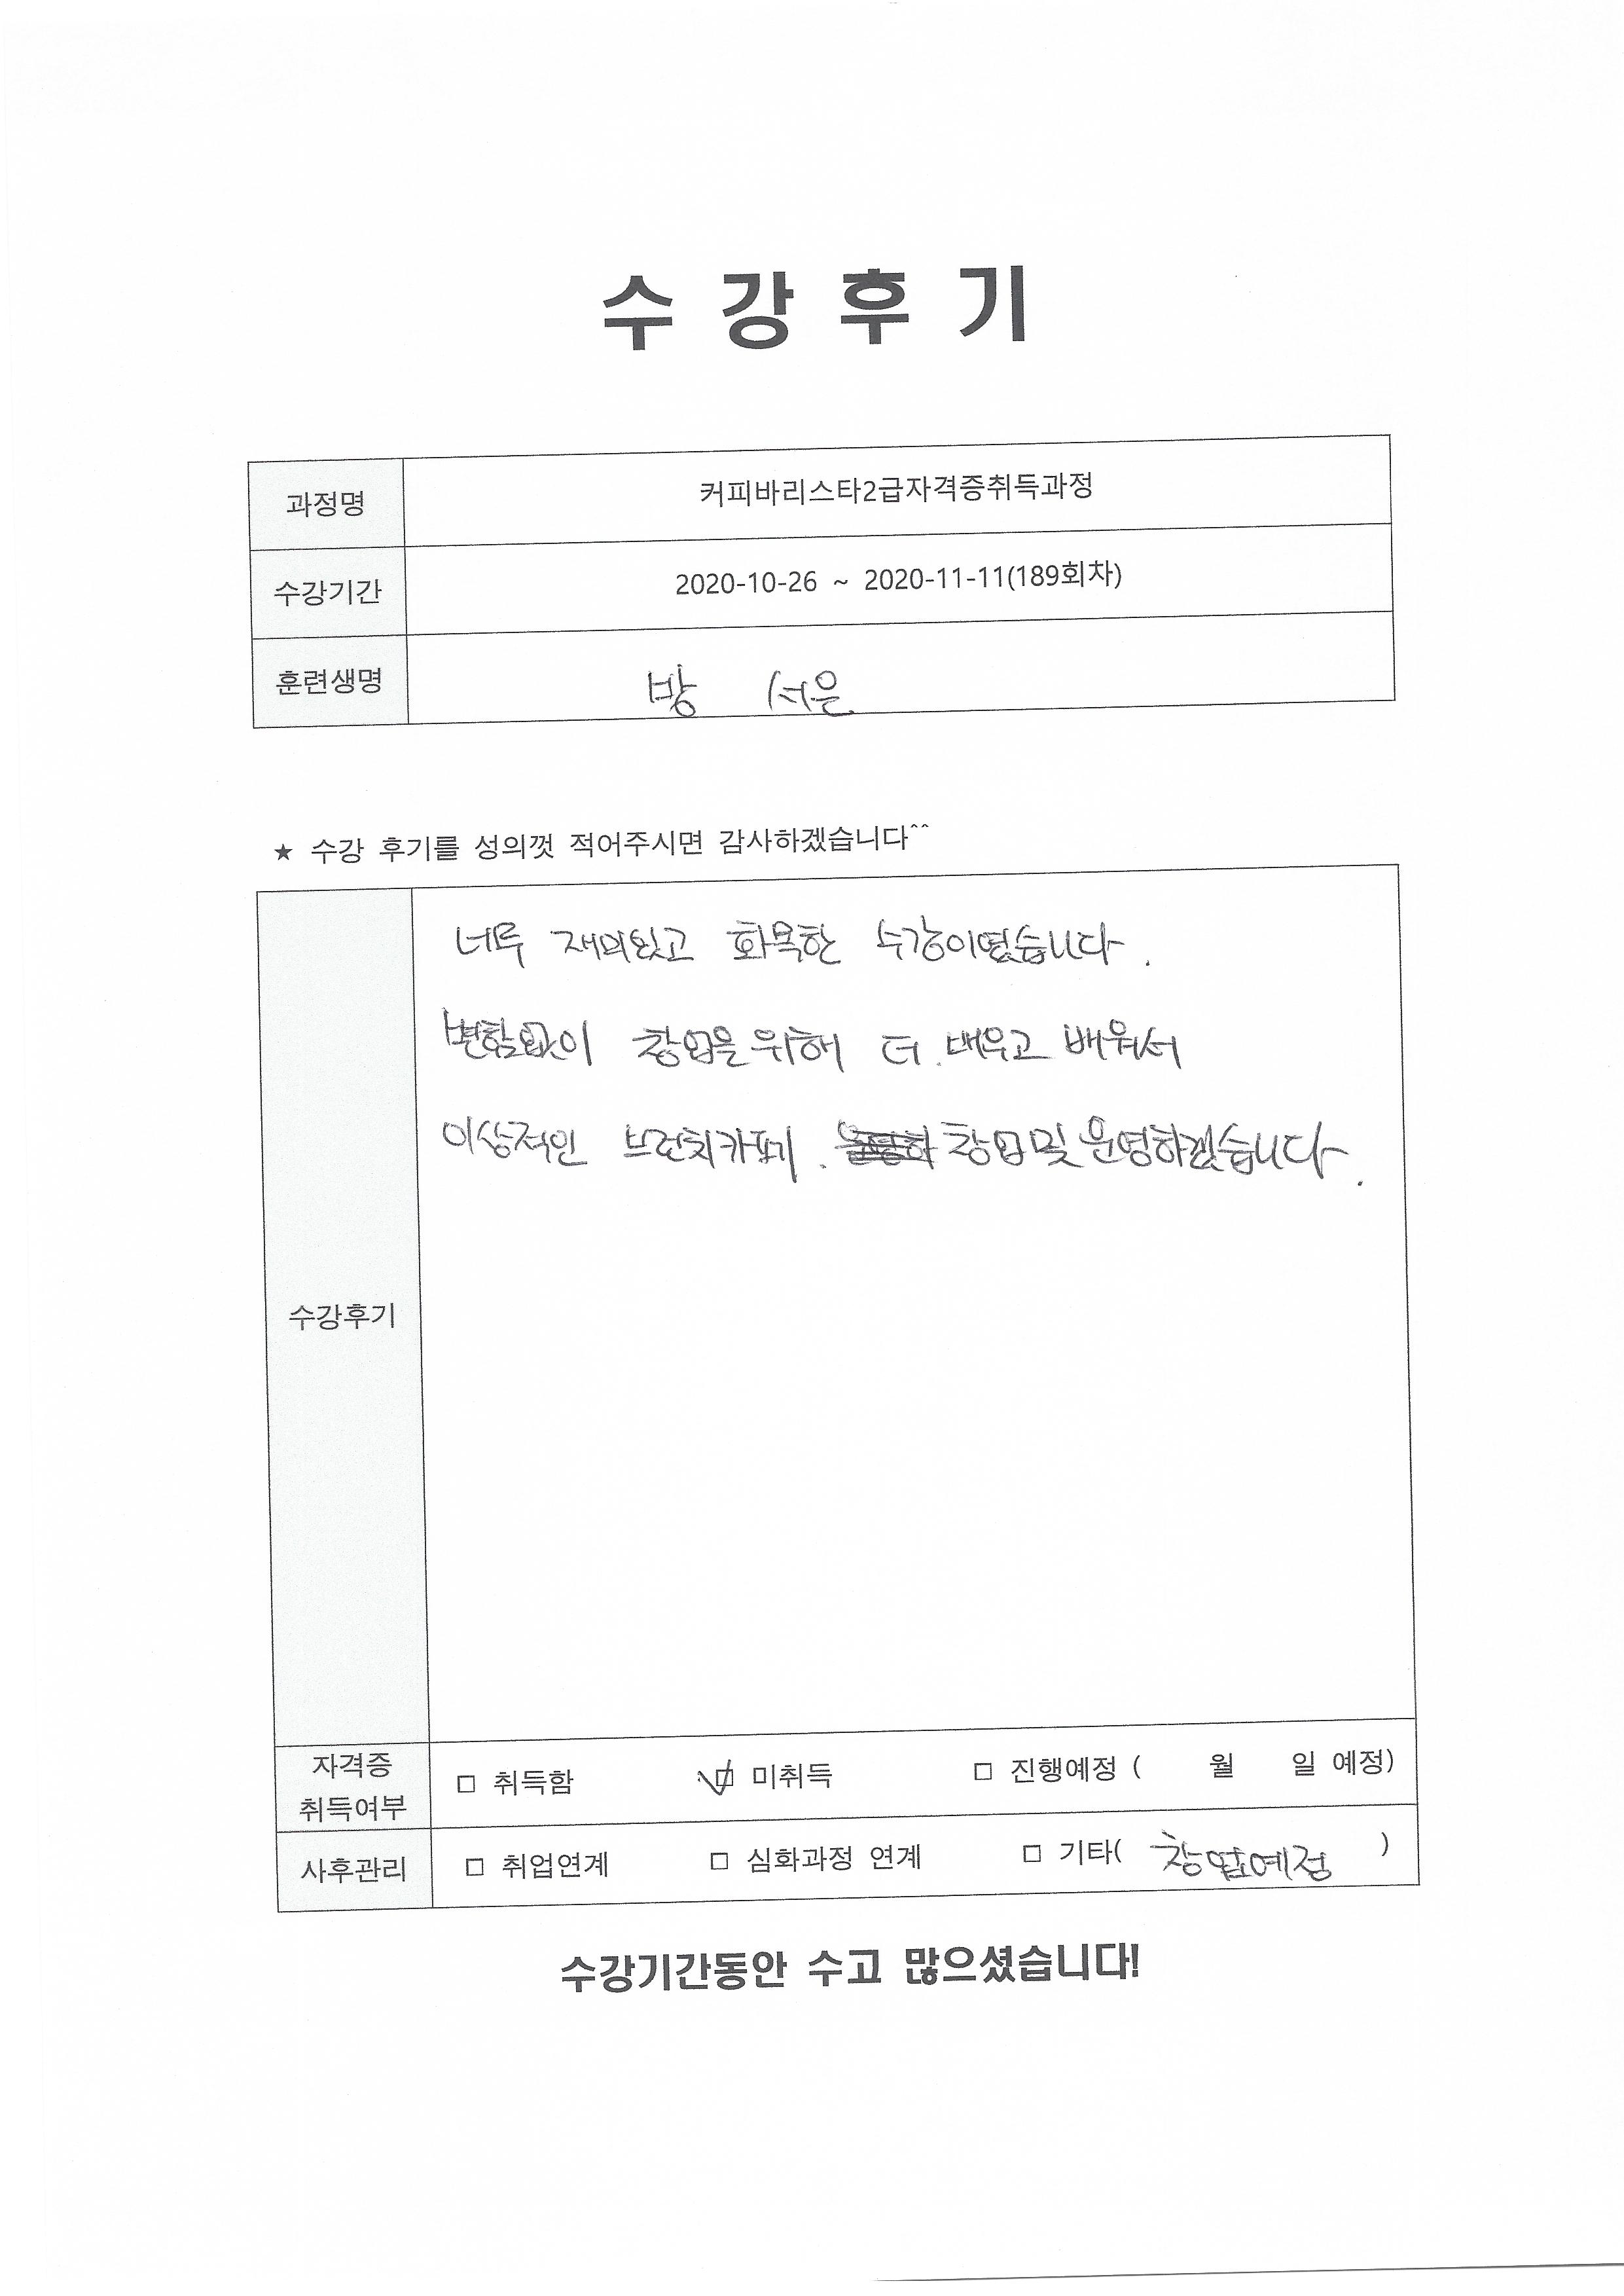 수 강 후 기
과정명 커피바리스타2급자격증취득과정
수강기간 2020-10-26 ~ 2020-11-11(189회차)
훈련생명 방 서은
★ 수강 후기를 성의껏 적어주시면 감사하겠습니다^^
너무 재미있고 화목한 수강이였습니다.
변함없이 창업을 위해 더 배우고 배워서
이상적인 브런치카페 창업 및 운영하겠습니다.
수강후기
자격증 취득여부 □ 취득함 ☑ 미취득 □ 진행예정 ( 월 일 예정)
사후관리 □ 취업연계 □ 심화과정 연계 □ 기타( 창업예정 )
수강기간동안 수고 많으셨습니다!